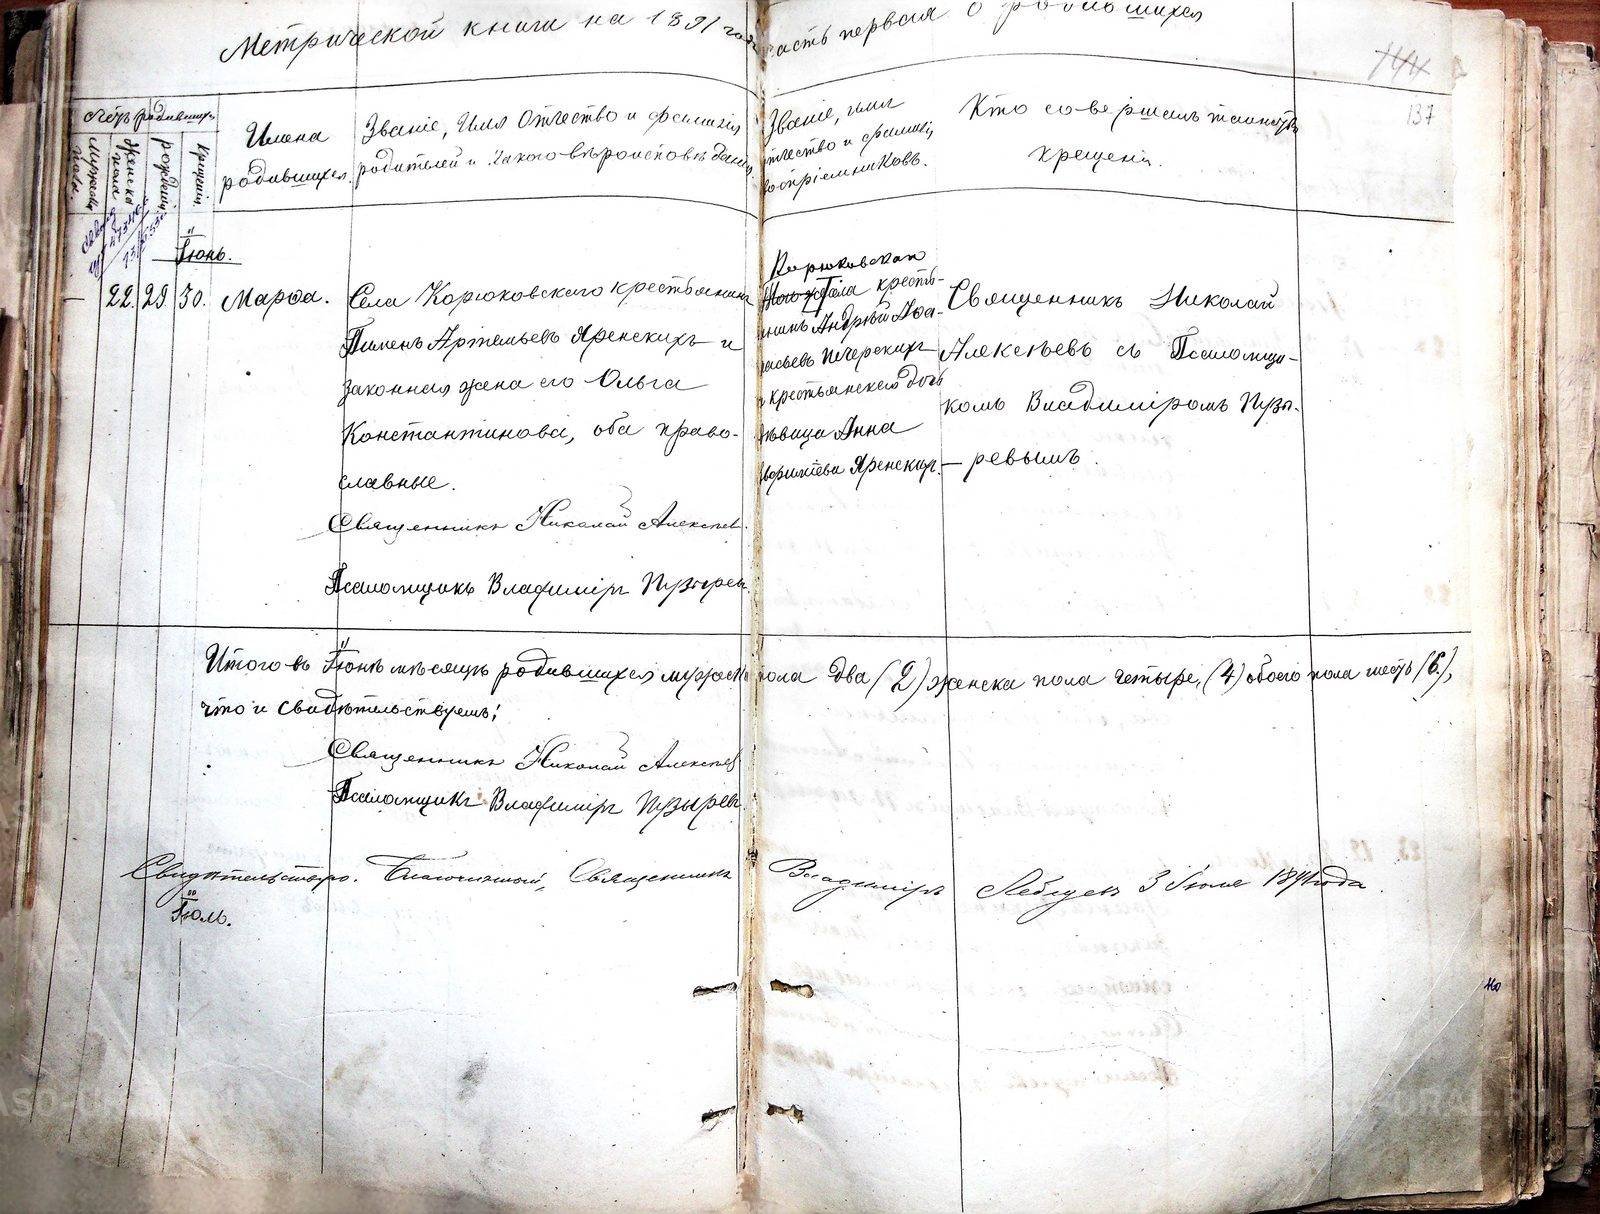 Метрической книги на 1891 годъ часть первая о родившихся
144
137
Счетъ родившихся
Мужеска пола.
Женска пола
рожденія
крещенія
Имена
родившихся.
Званіе, Имя Отчество и фамилія
родителей и какого вѣроисповѣданія.
Званіе, имя
отчество и фамилія
воспріемниковъ.
Кто совершалъ таинство
крещенія.
Іюнь.
— 22. 29. 30. Марѳа.
Села Корюковскаго крестьянинъ
Пименъ Артемьевъ Яренскихъ и
законная жена его Ольга
Константинова, оба право-
славные.
Священникъ Николай Алексѣевъ.
Псаломщикъ Владиміръ Пузыревъ.
Корюковскаго
села кресть-
янинъ Андрей Аѳа-
насьевъ Печерскихъ
и крестьянская дочь
дѣвица Анна
Яренскихъ.
Священникъ Николай
Алексѣевъ съ Псаломщи-
комъ Владиміромъ Пузы-
ревымъ.
Итого въ Іюнѣ мѣсяцѣ родившихся мужеска пола два (2) женска пола четыре, (4) обоего пола шесть (6.),
что и свидѣтельствуемъ:
Священникъ Николай Алексѣевъ
Псаломщикъ Владиміръ Пузыревъ.
Благочинный, Священникъ Владиміръ 3 Іюля 1891 года.
Іюль.